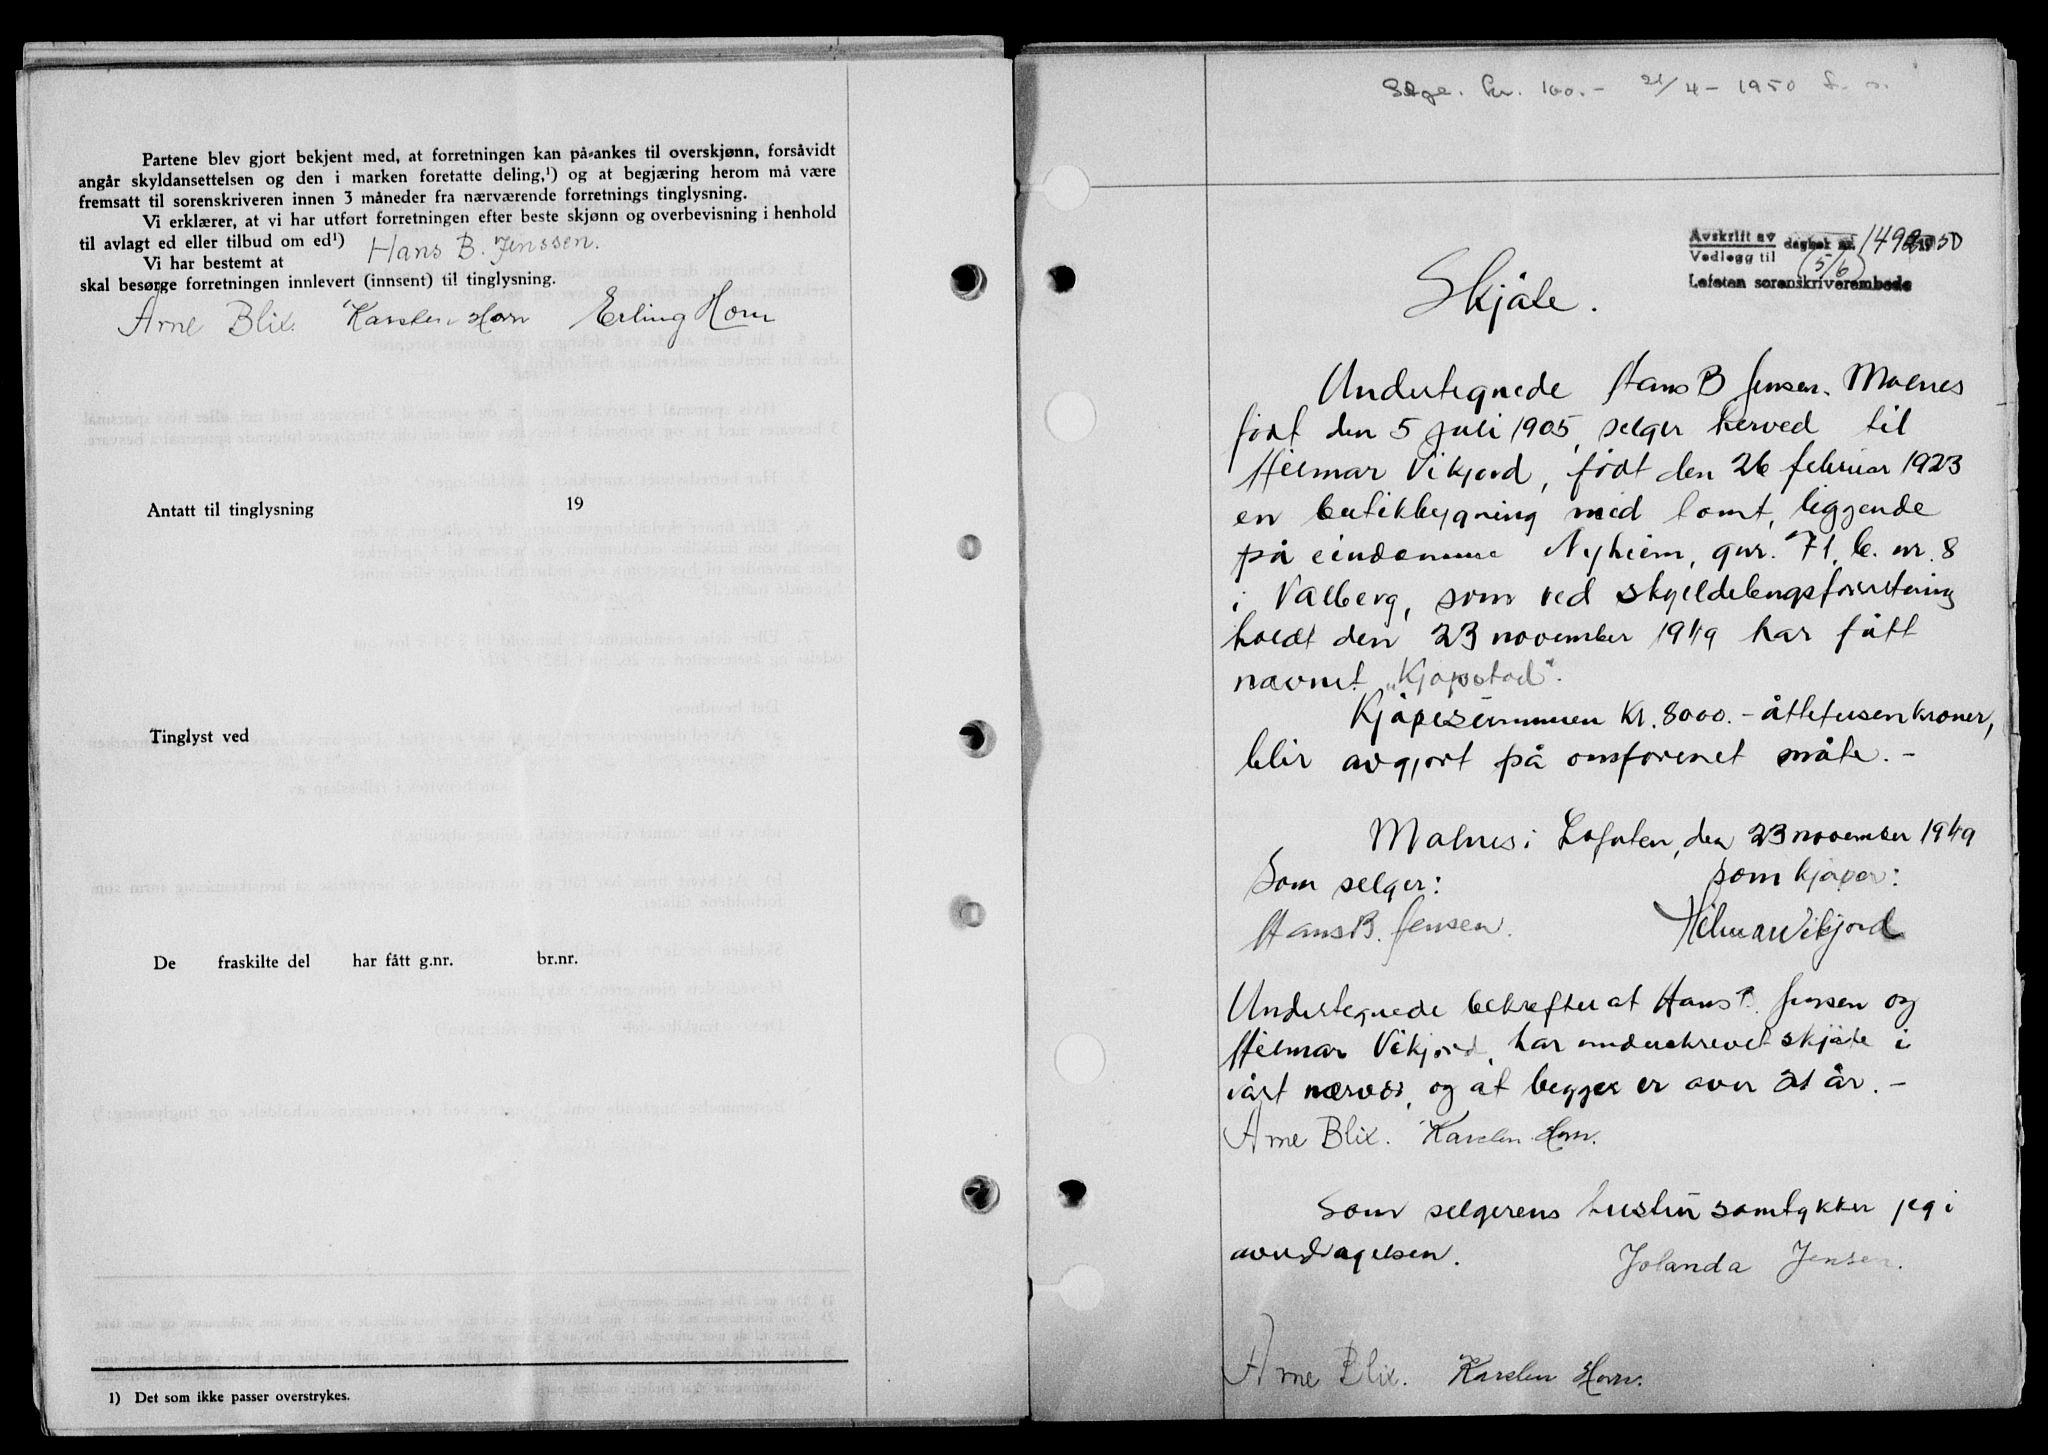 Partene blev gjort bekjent med, at forretningen kan på-ankes til overskjønn, forsåvidt
angår skyldansettelsen og den i marken foretatte deling,¹) og at begjæring herom må være
fremsatt til sorenskriveren innen 3 måneder fra nærværende forretnings tinglysning.
Vi erklærer, at vi har utført forretningen efter beste skjønn og overbevisning i henhold
til avlagt ed eller tilbud om ed¹) Hans B. Jenssen.
Vi har bestemt at
skal besørge forretningen innlevert (innsent) til tinglysning.
Arne Blix. Karsten Horn Erling Horn
Antatt til tinglysning 19
Tinglyst ved
De fraskilte del har fått g.nr. br.nr.
1) Det som ikke passer overstrykes.
kr. 100.- 21/4-1950
Avskrift av dagbok nr. 1492 1950
Vedlegg til (5/6)
Lofoten sorenskriverembede
Skjøte.
Undertegnede Hans B. Jensen. Molnes
født den 5 juli 1905, selger herved til
Hilmar Vikjord, født den 26 februar 1923
en butikbygning med tomt, liggende
på eindomme Nyheim, gnr. 71, b. nr. 8
i Valberg, som ved skylddelingsforretning
holdt den 23 november 1949 har fått
navnet „Kjøpstad".
Kjøpesummen kr. 8000.- åttetusenkroner,
blir avgjort på omforenet måte. -
Molnes i Lofoten, den 23 november 1949
Som selger: som kjøper:
Hans B. Jensen. Hilmar Vikjord
Undertegnede bekrefter at Hans B. Jensen og
Hilmar Vikjord, har underskrevet skjøte i
vårt nærvær, og at begges er over 21 år. -
Arne Blix. Karsten Horn.
Som selgerens hustru samtykker jeg i
overdragelsen.
Jolanda Jensen.
Arne Blix. Karsten Horn.